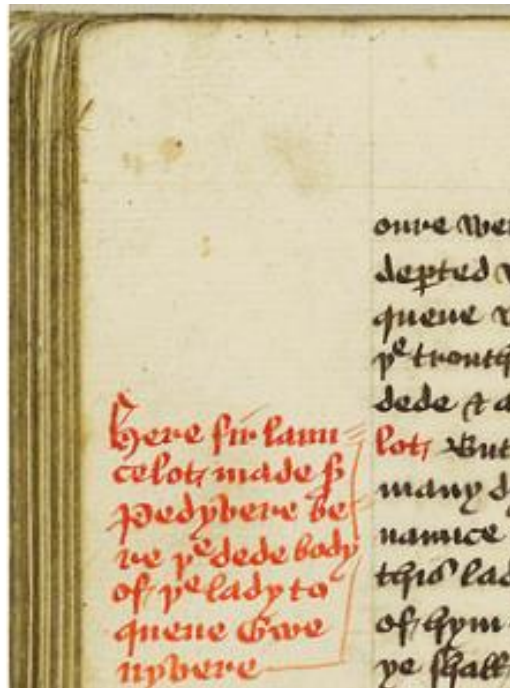 Here sir laun
celot made ß
Pedyvere be
re þe dede body
of þe lady to
quene Gwe
nyvere
oure
depted
quene
þe
dede &
lot, But
many
naunce
this
of hym
ye shall